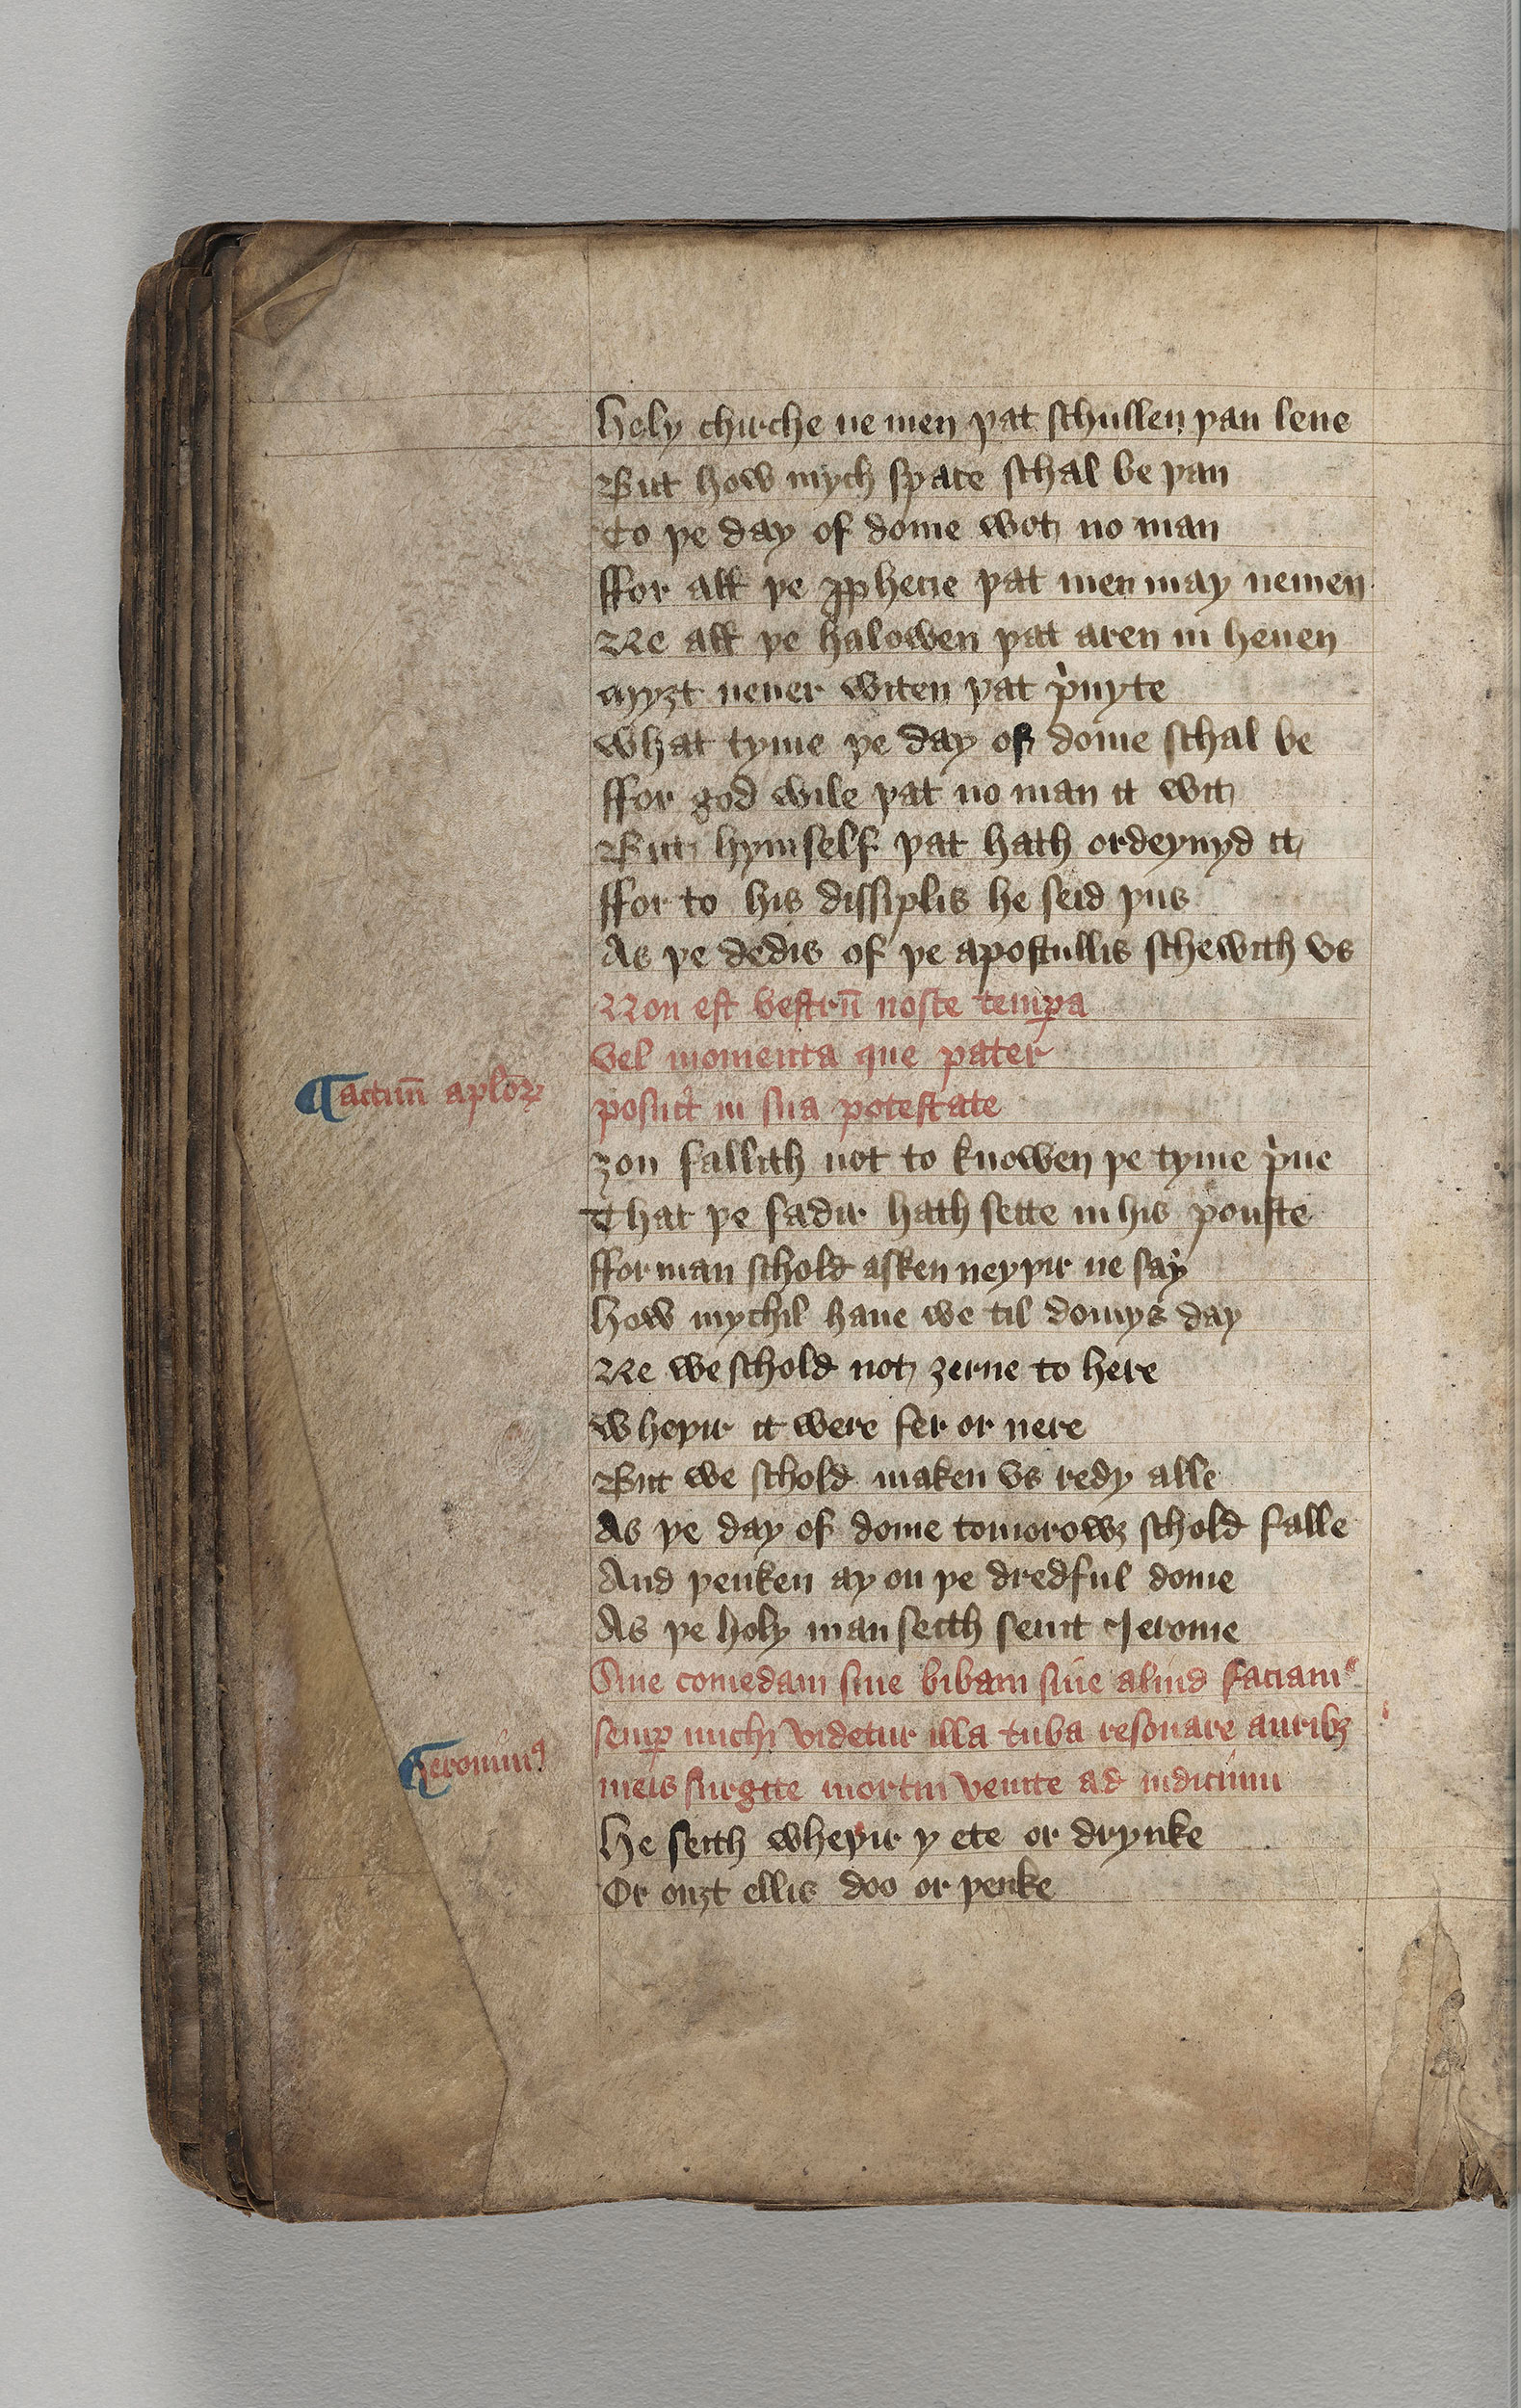 Holy chirche ne men þat schullen þan leue
But how mych space schal be þan
To þe day of dome wot no man
ffor all þe ꝓphecie þat men may nemen
Ne all þe halowen þat aren in heuen
Myȝt neuer witen þat pͥuyte
What tyme þe day of dome schal be
ffor god wile þat no man it wit
But hymself þat hath ordeynyd it
ffor to his dissiplis he seid þus
As þe dedis of þe apostullis schewith vs
Non est vestrū nosce temꝑa
vel momenta que pater
¶ actuū aplōꝝ
posuit in sua potestate
Ȝou fallith not to knowen þe tyme pͥue
That þe fadir hath sette in his pouste
ffor man schold asken neyþir ne say
How mychil haue we til domys day
Ne we schold not ȝerne to here
Wheþir it were fer or nere
But we schold maken vs redy alle
As þe day of dome tomorowȝ schold falle
And þenken ay on þe dredful dome
As þe holy man seith seint Jerome
Siue comedam siue bibam siue aliud faciam
semꝑ michi videtur illa tuba resonare auribꝫ
¶ Jeronimꝰ
meis surgite mortui venite ad iudicium
He seith wheþir y ete or drynke
Or ouȝt ellis doo or þenke